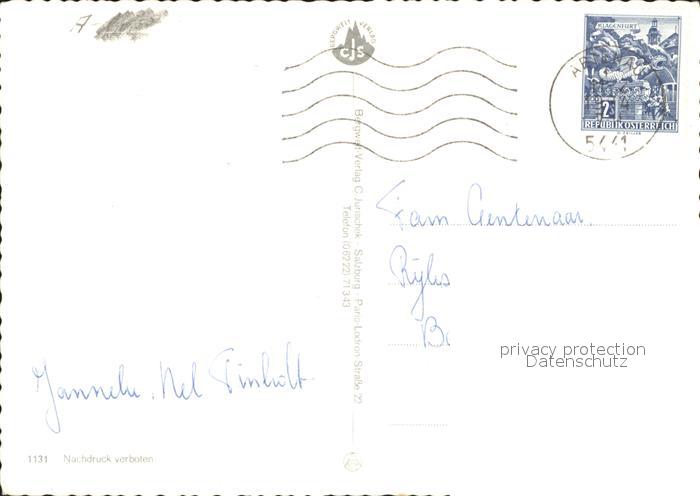 7-
BERGWELT VERLAG
cJs
KLAGENFURT
2S
REPUBLIK ÖSTERREICH
5441
Bergwelt-Verlag C. Jurischek - Salzburg - Paris-Lodron-Straße 22
Telefon (06222) 71343
Fam Gentenaar.
privacy protection
Datenschutz
Janneke, Nel
1131 Nachdruck verboten